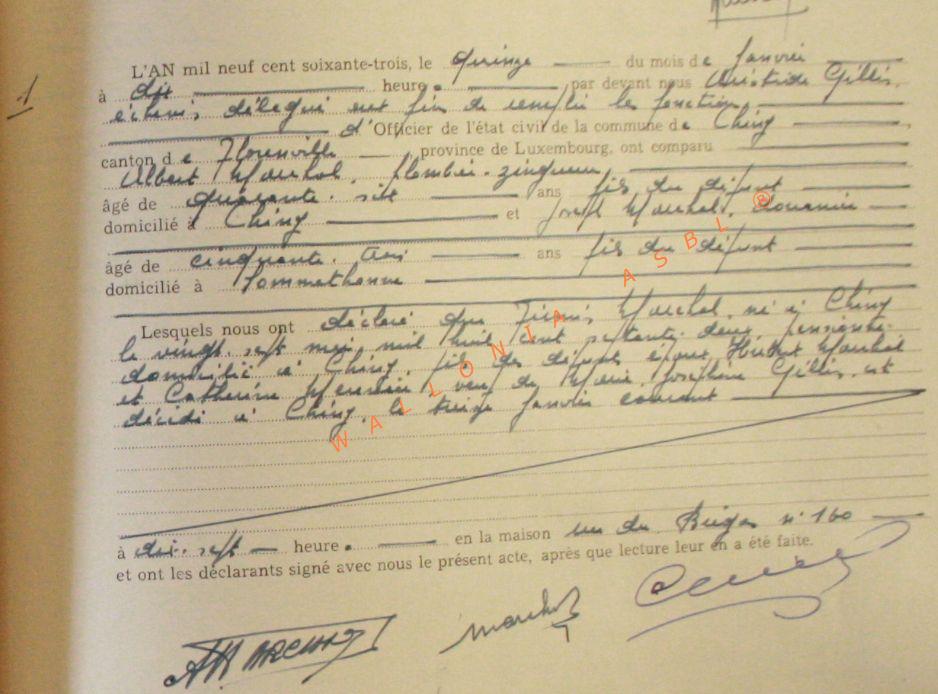 1
L'AN mil neuf cent soixante-trois, le quinze du mois de Janvier
à dix heures par devant nous Aristide Gillis,
échevin, délégué aux fins de remplir les fonctions
d'Officier de l'état civil de la commune de Chiny,
canton de Florenville, province de Luxembourg, ont comparu
Albert Marchal, plombier-zingueur,
âgé de quarante-sept ans fils du défunt
domicilié à Chiny et Joseph Marchal, Douanier
âgé de cinquante-trois ans fils du défunt
domicilié à Sommethonne
Lesquels nous ont déclaré que Marchal, né à Chiny
le vingt-sept mai mil huit cent septante-deux, pensionné,
domicilié à Chiny, fils des défunts époux Hubert Marchal
et Catherine veuf de Marie Joséphine Gillis, est
décédé à Chiny, le treize Janvier courant
à dix-sept heures en la maison rue du n° 160
et ont les déclarants signé avec nous le présent acte, après que lecture leur en a été faite.
WALLONIA ASBL ®
A MARCHAL
Marchal